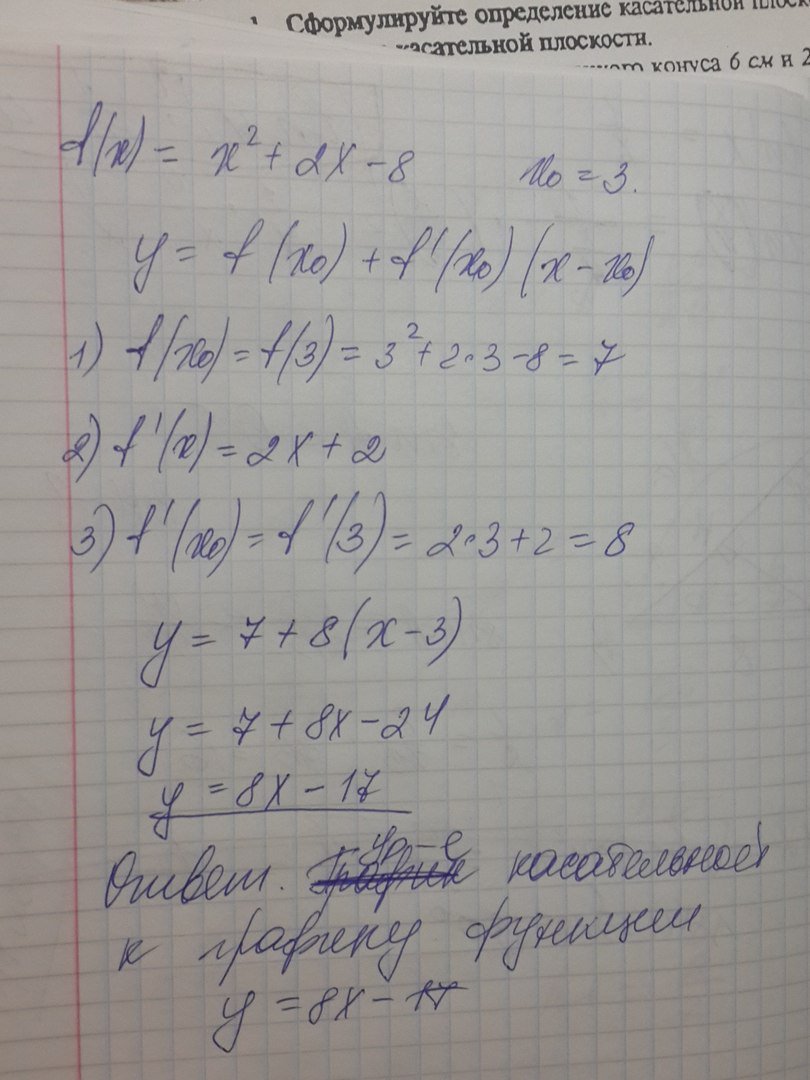 1. Сформулируйте определение касательной
касательной плоскости.
конуса 6 см и 2
f(x) = x² + 2x - 8 x₀ = 3.
y = f(x₀) + f'(x₀)(x - x₀)
1) f(x₀) = f(3) = 3² + 2·3 - 8 = 7
2) f'(x) = 2x + 2
3) f'(x₀) = f'(3) = 2·3 + 2 = 8
y = 7 + 8(x - 3)
y = 7 + 8x - 24
y = 8x - 17
Ответ. Ур-е касательной
к графику функции
y = 8x - 17